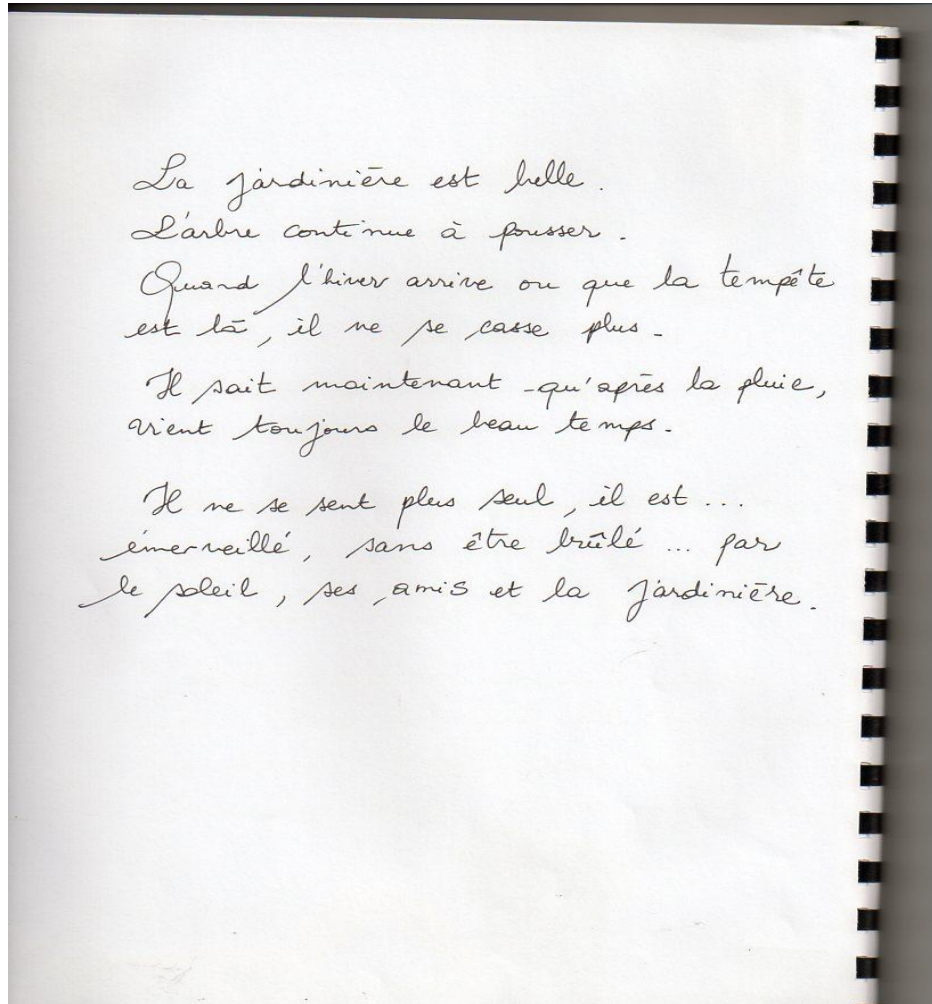 La jardinière est belle.
L'arbre continue à pousser.
Quand l'hiver arrive ou que la tempête
est là, il ne se casse plus.
Il sait maintenant qu'après la pluie,
vient toujours le beau temps.
Il ne se sent plus seul, il est ...
émerveillé, sans être brûlé ... par
le soleil, ses amis et la jardinière.